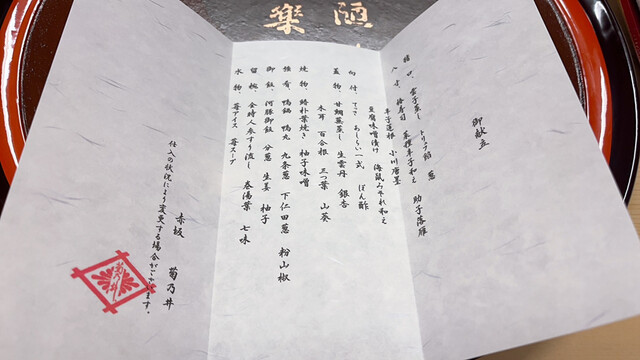 樂
御献立
猪口 雲子蒸し トリュフ餡 葱
八寸 寿司 菜種辛子和え 助子落雁
辛子蓮根 小川唐墨
豆腐味噌漬け 海鼠みぞれ和え
向付 てっさ あしらい一式 ぽん酢
蓋物 甘鯛蕪蒸し 生雲丹 銀杏
木耳 百合根 三つ葉 山葵
焼物 朴葉焼き 柚子味噌
強肴 鴨鍋 鴨丸 九条葱 下仁田葱 粉山椒
御飯 河豚御飯 分葱 生姜 柚子
留椀 金時人参すり流し 巻湯葉 七味
水物 苺アイス 苺スープ
赤坂 菊乃井
仕入の状況により変更する場合がございます。
菊乃井